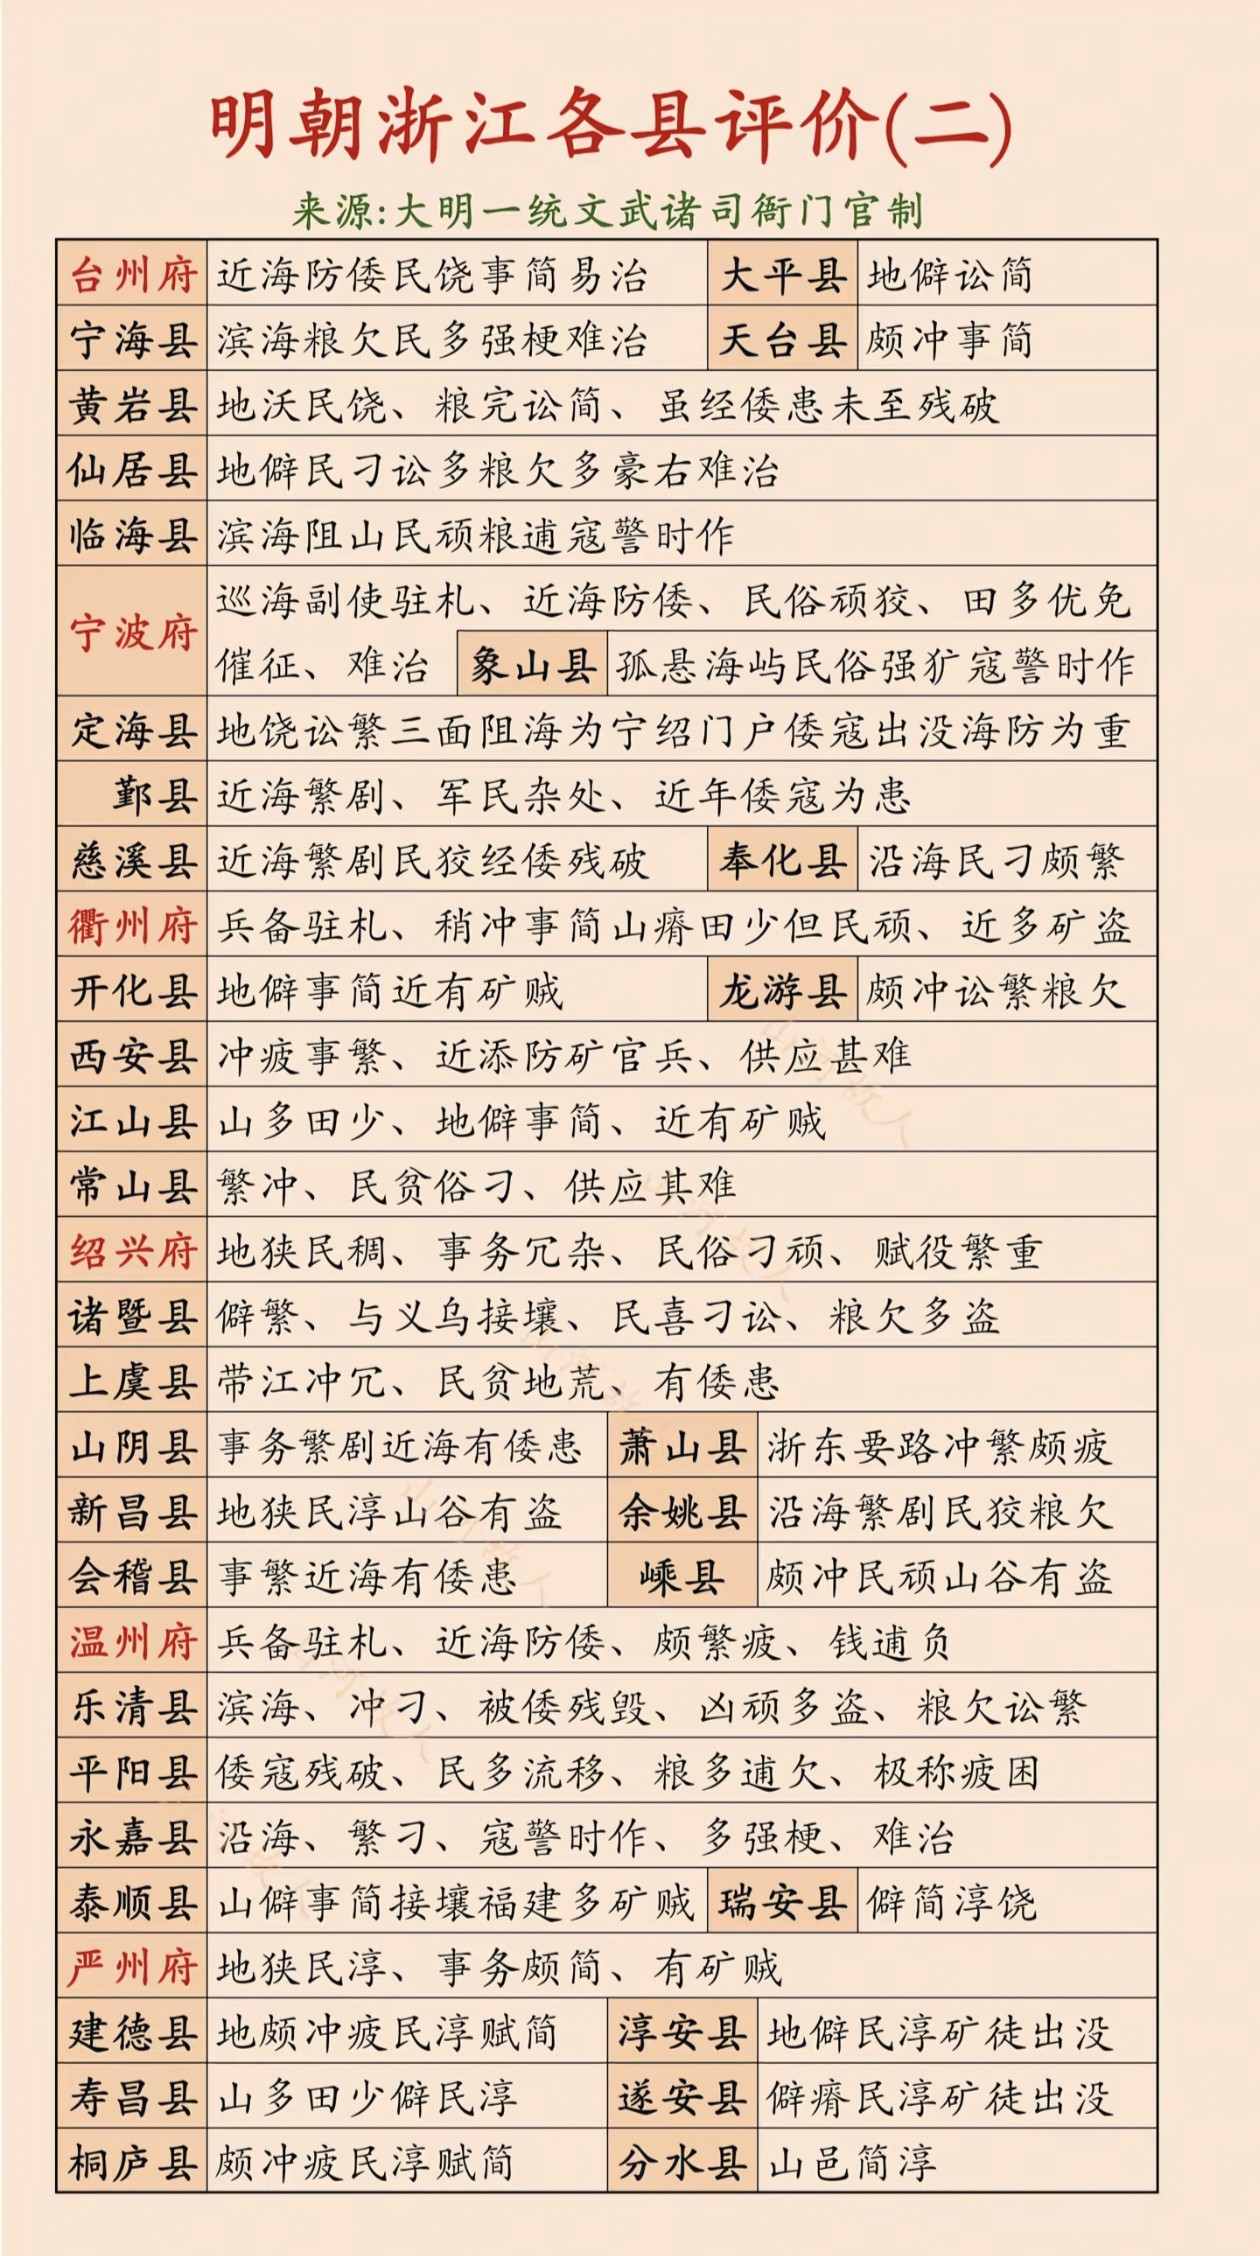 明朝浙江各县评价(二)
来源:大明一统文武诸司衙门官制
台州府 近海防倭民饶事简易治 大平县 地僻讼简
宁海县 滨海粮欠民多强梗难治 天台县 颇冲事简
黄岩县 地沃民饶、粮完讼简、虽经倭患未至残破
仙居县 地僻民刁讼多粮欠多豪右难治
临海县 滨海阻山民顽粮逋寇警时作
宁波府 巡海副使驻札、近海防倭、民俗顽狡、田多优免
催征、难治 象山县 孤悬海屿民俗强犷寇警时作
定海县 地饶讼繁三面阻海为宁绍门户倭寇出没海防为重
鄞县 近海繁剧、军民杂处、近年倭寇为患
慈溪县 近海繁剧民狡经倭残破 奉化县 沿海民刁颇繁
衢州府 兵备驻札、稍冲事简山瘠田少但民顽、近多矿盗
开化县 地僻事简近有矿贼 龙游县 颇冲讼繁粮欠
西安县 冲疲事繁、近添防矿官兵、供应甚难
江山县 山多田少、地僻事简、近有矿贼
常山县 繁冲、民贫俗刁、供应其难
绍兴府 地狭民稠、事务冗杂、民俗刁顽、赋役繁重
诸暨县 僻繁、与义乌接壤、民喜刁讼、粮欠多盗
上虞县 带江冲冗、民贫地荒、有倭患
山阴县 事务繁剧近海有倭患 萧山县 浙东要路冲繁颇疲
新昌县 地狭民淳山谷有盗 余姚县 沿海繁剧民狡粮欠
会稽县 事繁近海有倭患 嵊县 颇冲民顽山谷有盗
温州府 兵备驻札、近海防倭、颇繁疲、钱逋负
乐清县 滨海、冲刁、被倭残毁、凶顽多盗、粮欠讼繁
平阳县 倭寇残破、民多流移、粮多逋欠、极称疲困
永嘉县 沿海、繁刁、寇警时作、多强梗、难治
泰顺县 山僻事简接壤福建多矿贼 瑞安县 僻简淳饶
严州府 地狭民淳、事务颇简、有矿贼
建德县 地颇冲疲民淳赋简 淳安县 地僻民淳矿徒出没
寿昌县 山多田少僻民淳 遂安县 僻瘠民淳矿徒出没
桐庐县 颇冲疲民淳赋简 分水县 山邑简淳
山河故人
山河故人
山河故人
山河故人
山河故人
山河故人